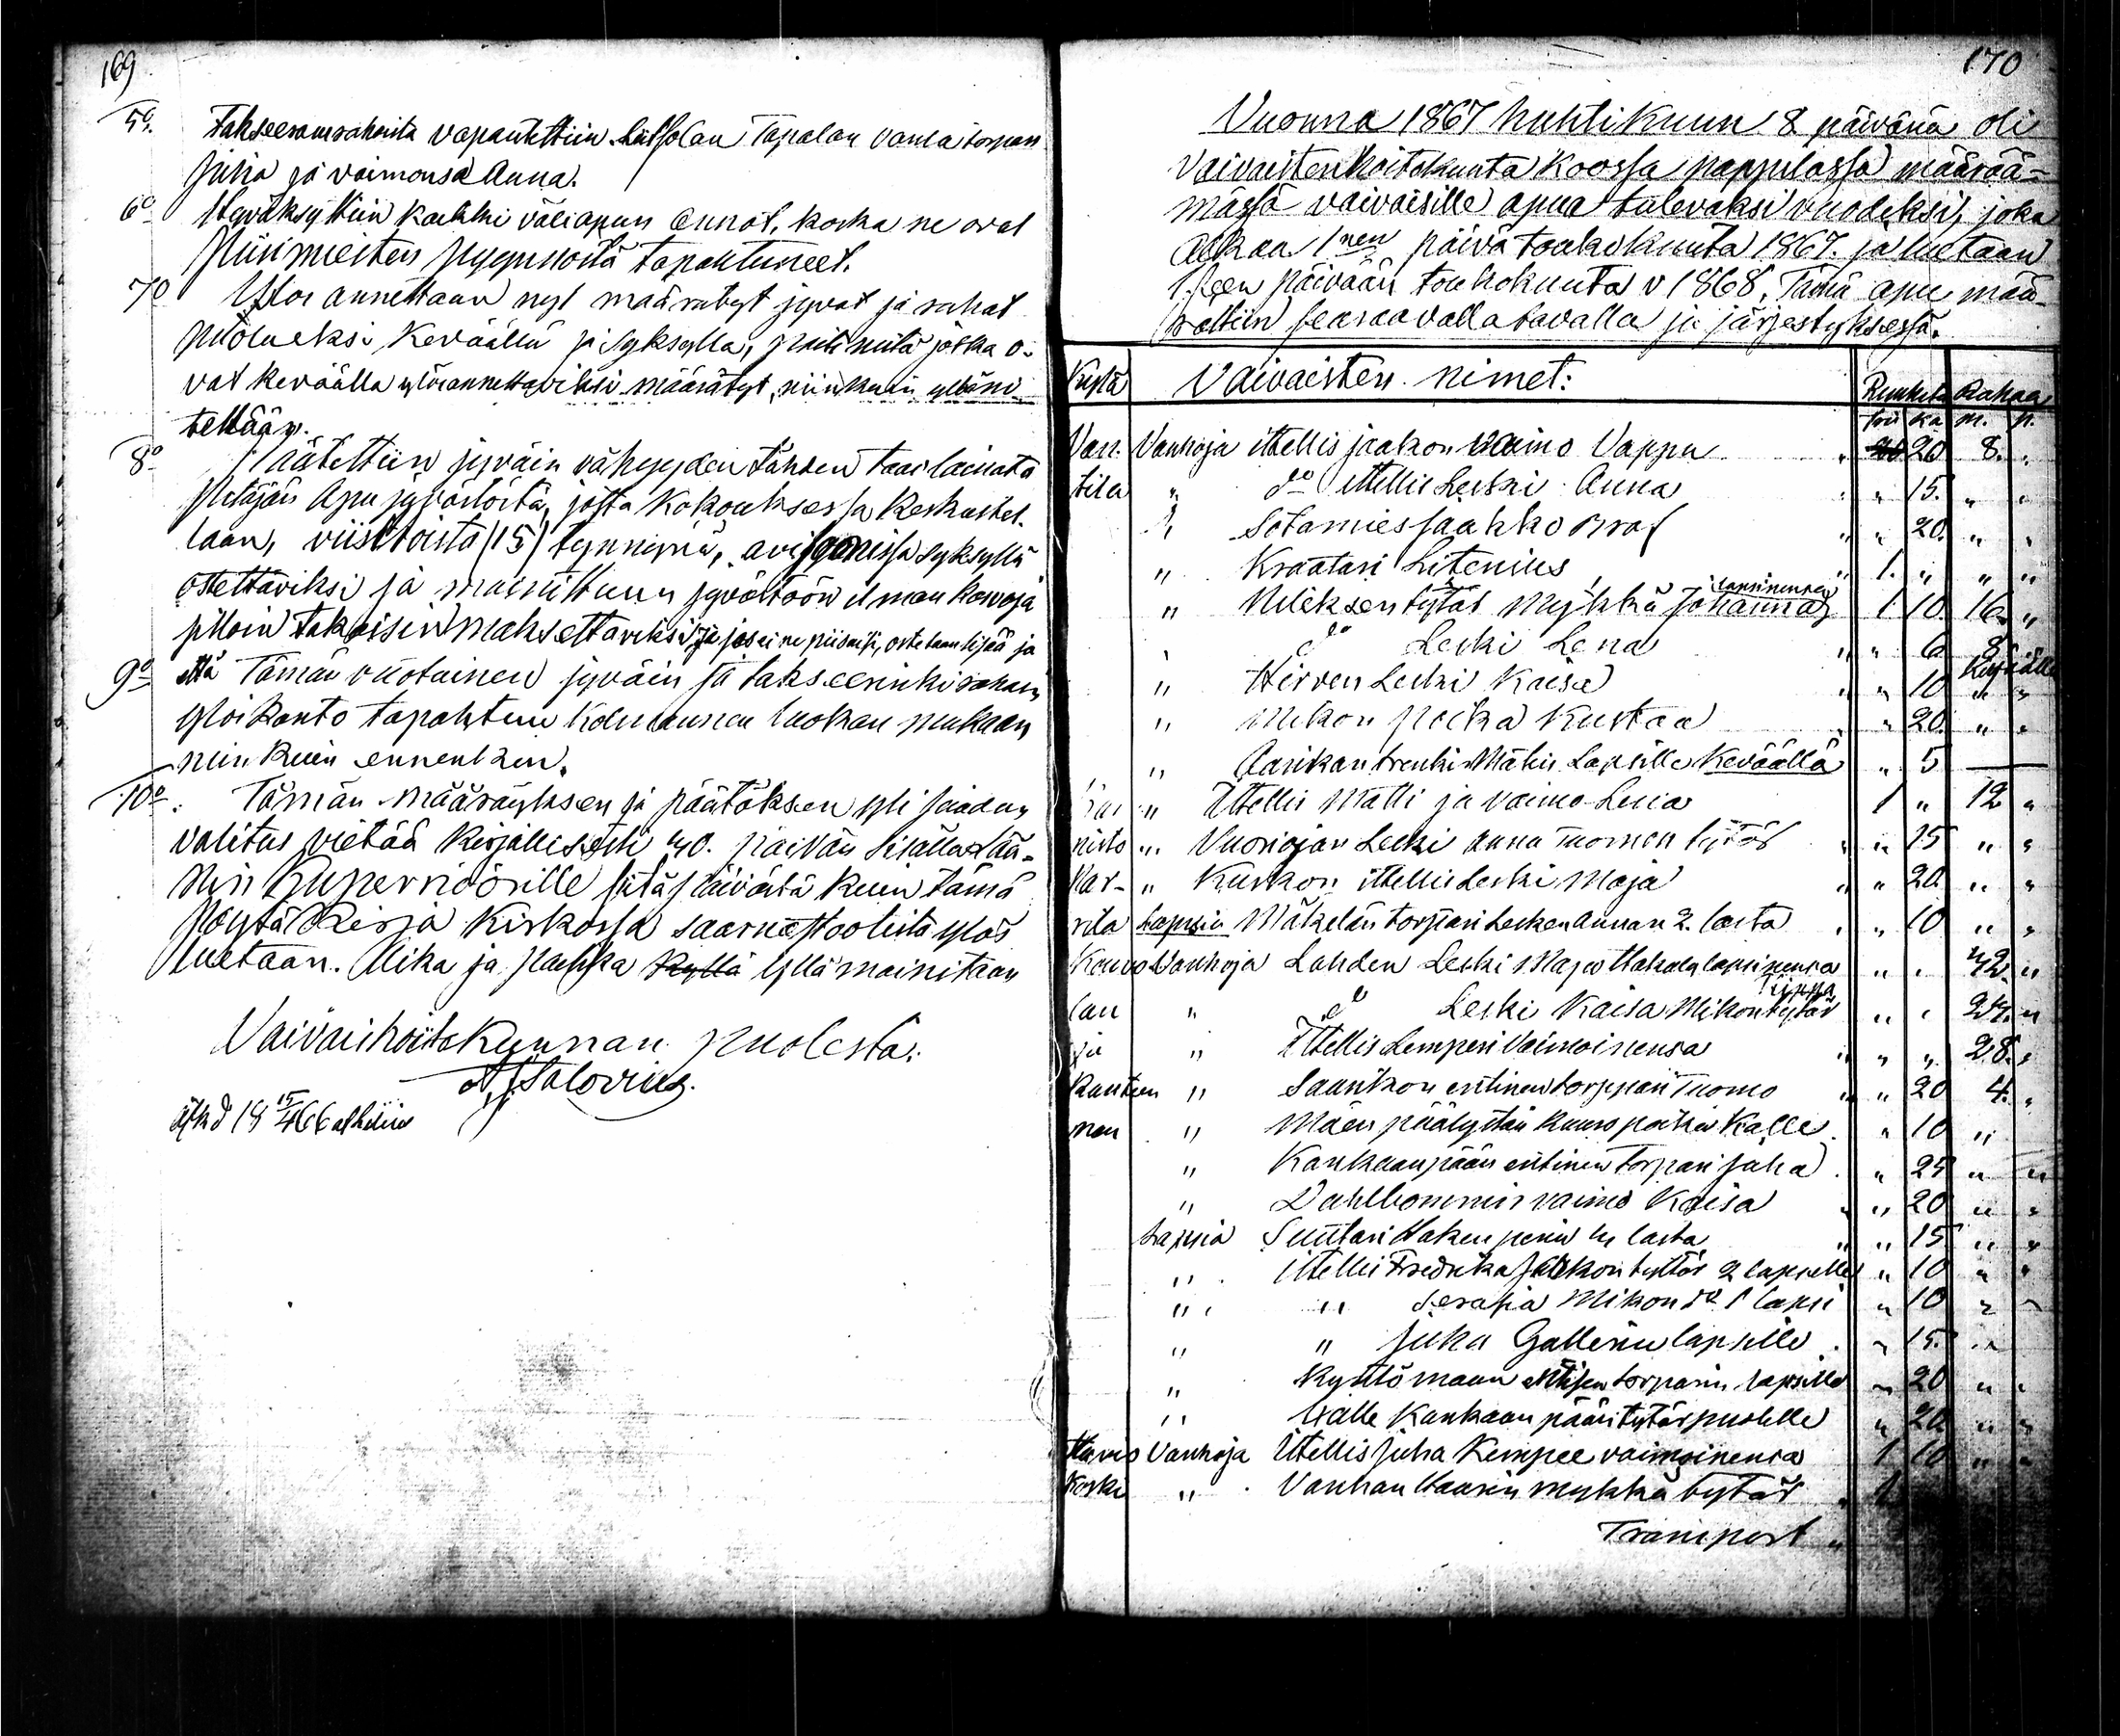 169
5o. Takseeraus rahoista vapautettiin Tapalan vanha torpan
Juha ja vaimonsa Anna.
6o Hyväksyttiin kaikki väliapun annot, koska ne ovat
piirimiesten tapahtuneet.
7o Ylös annettaan nyt määrätyt jyvät ja rahat
puoleksi keväällä ja syksyllä, paiti niitä jotka o-
vat keväällä ylösannettaviksi määrätyt, niinkuin
tellään.
8o Päätettiin jyväin vähyyden tähden taas lainata
pitäjän Apu jyvästöstä, josta kokouksessa keskustel-
laan, viisitoista (15) tynnyriä, syksyllä
ostettaviksi ja mainittuun jyvästöön ilman kasvoja
silloin takaisin maksettaviksi ja jos ei ne piisaisi, ostetaan lisää ja
9o että Tämän vuotainen jyväin ja takseerinki rahain
ylöskanto tapahtuu kolmannen luokan mukaan
niin kuin ennenkin.
10o. Tämän määräyksen ja päätöksen yli saadaan
valitus vietää kirjallisesti 40. päivän sisällä Lää-
nin Kupernöörille siitä päivästä kuin tämä
Pöytäkirja kirkossa saarnastoolista ylös
luetaan. Aika ja paikka kyllä yllä mainitaan
Vaivaishoitokunnan puolesta:
A. J. Salovius.
18 15/4 66
170
Vuonna 1867 huhtikuun 8 päivänä oli
Vaivaistenhoitokunta koossa pappilassa määrää-
mässä vaivaisille apua tulevaksi vuodeksi, joka
alkaa 1nen päivä toukokuuta 1867. ja luetaan
1seen päivään toukokuuta v 1868. Tämä apu mää-
rättiin seuraavalla tavalla ja järjestyksessä.
Kylä Vaivaisten nimet: Rukiita Rahaa
tn ka m. p.
Van- Vanhoja ittellis Jaakon vaimo Vappu " 20 8. "
tila " do ittellis Leski Anna " 15. " "
" Sotamies Jaakko Braf " 20. " "
" Kraatari Litenius 1. " " "
" Nileksen tytär Mykkä Johanna lapsinensa 1 10. 16 "
" do Leski Lena " 6 8
" Hirven Leski Kaisa " 10 Keväällä
" Mikon poika Kustaa " 20. " "
" Aarikan trenki Matin Lapsille Keväällä " 5 —
" Ittellis Matti ja vaimo Liisa 1 " 12 "
nisto " Vuoriojan Leski Anna Tuomen tytär " 15 " "
Kar- " Kuskon ittellis Leski Maja " 20. " "
vita Lapsia Mäkelän torppari Lesken Annan 2. lasta " 10 " "
Kouvo Vanhoja Lahden Leski Maja lapsinensa " " 42. "
lan " do Leski Kaisa Mikontytär " " 24. "
ja " Ittellis Lemperi Vaimoinensa " " 28. "
Kantien " Saarikon entinen torppari Tuomo " 20 4. "
nen " Mäen päälystän kuuro poika Kalle " 10 "
" Kankaanpään entinen Torpari Juha " 25 " "
" Dahlbommin vaimo Kaisa " 20 " "
Lapsia Suutari Hakenperin 4 lasta " 15 " "
" Ittellis Fredrika Jaakon tyttär 2 lapselle " 10 " "
" " Serafia Mikon do 1 lapsi " 10 " "
" " Juha Gallenin lapsille " 15. " "
" Kyttömaan entisen torparin lapsille " 20 " "
" Kalle Kankaanpään tytärpuolelle " 20 " "
Havus Vanhoja Ittellis Juha Kempee vaimoinensa 1 10 " "
koski " Vanhan Haarin mykkä tytär 1
Transport "